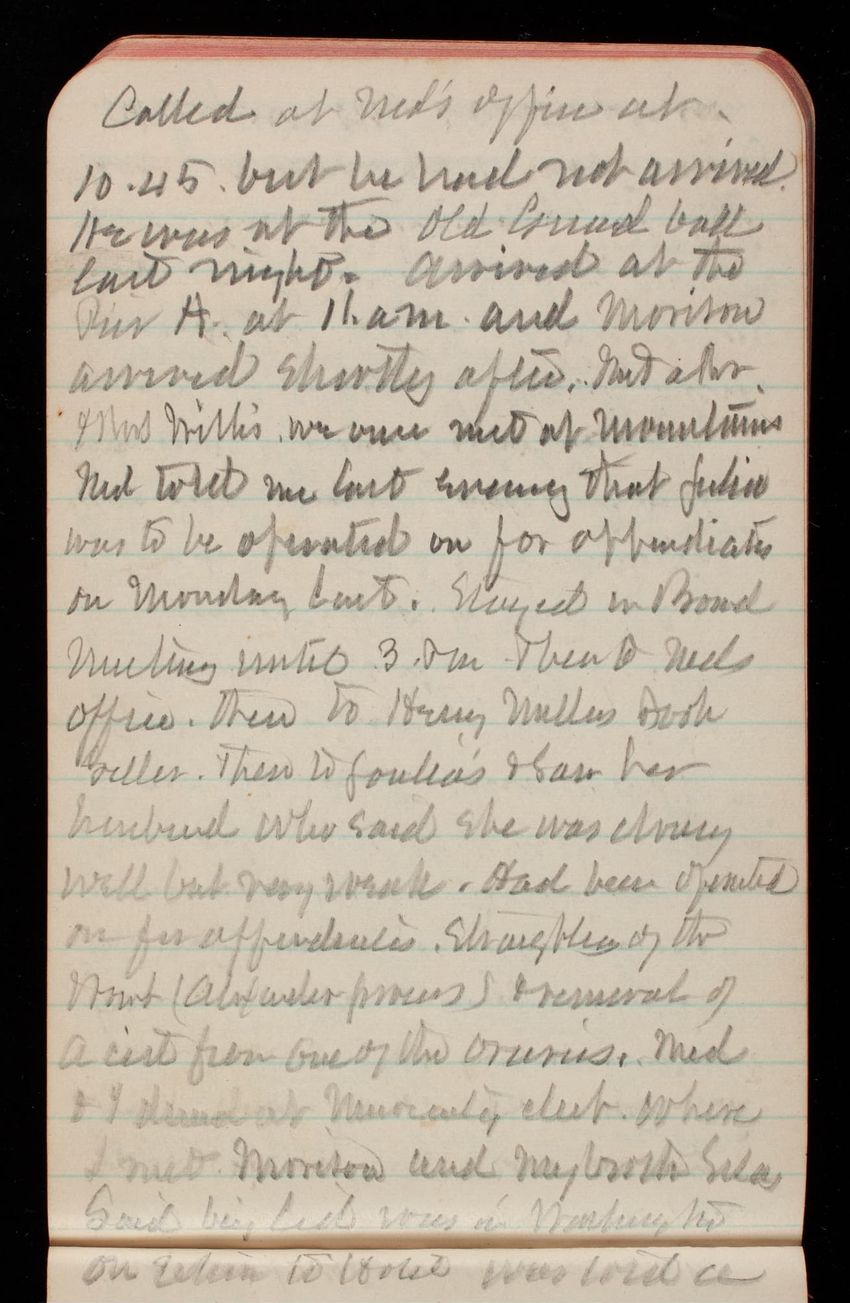 Called at Ned's office at
10.45. but he had not arrived.
He was at the Old Guard ball
last night. Arrived at the
Pier A. at 11. am. and Morison
arrived shortly after. Met a Mr.
& Mrs Willis. we once met at Mountains
Ned told me last evening that Julia
was to be operated on for appendicites
on Monday last. Stayed in Board
Meeting until 3. Then to Neds
office. then to Henry Millers Book
seller. Then to Julia's & saw her
husband who said she was doing
well but very weak. Had been operated
on for appendicites. Straightening of the
Womb (Alexander process) & removal of
a cist from one of the ovaries. Ned
& I dined at University club. Where
I met Morison and
Said big was in Washington
on return to Hotel was told a